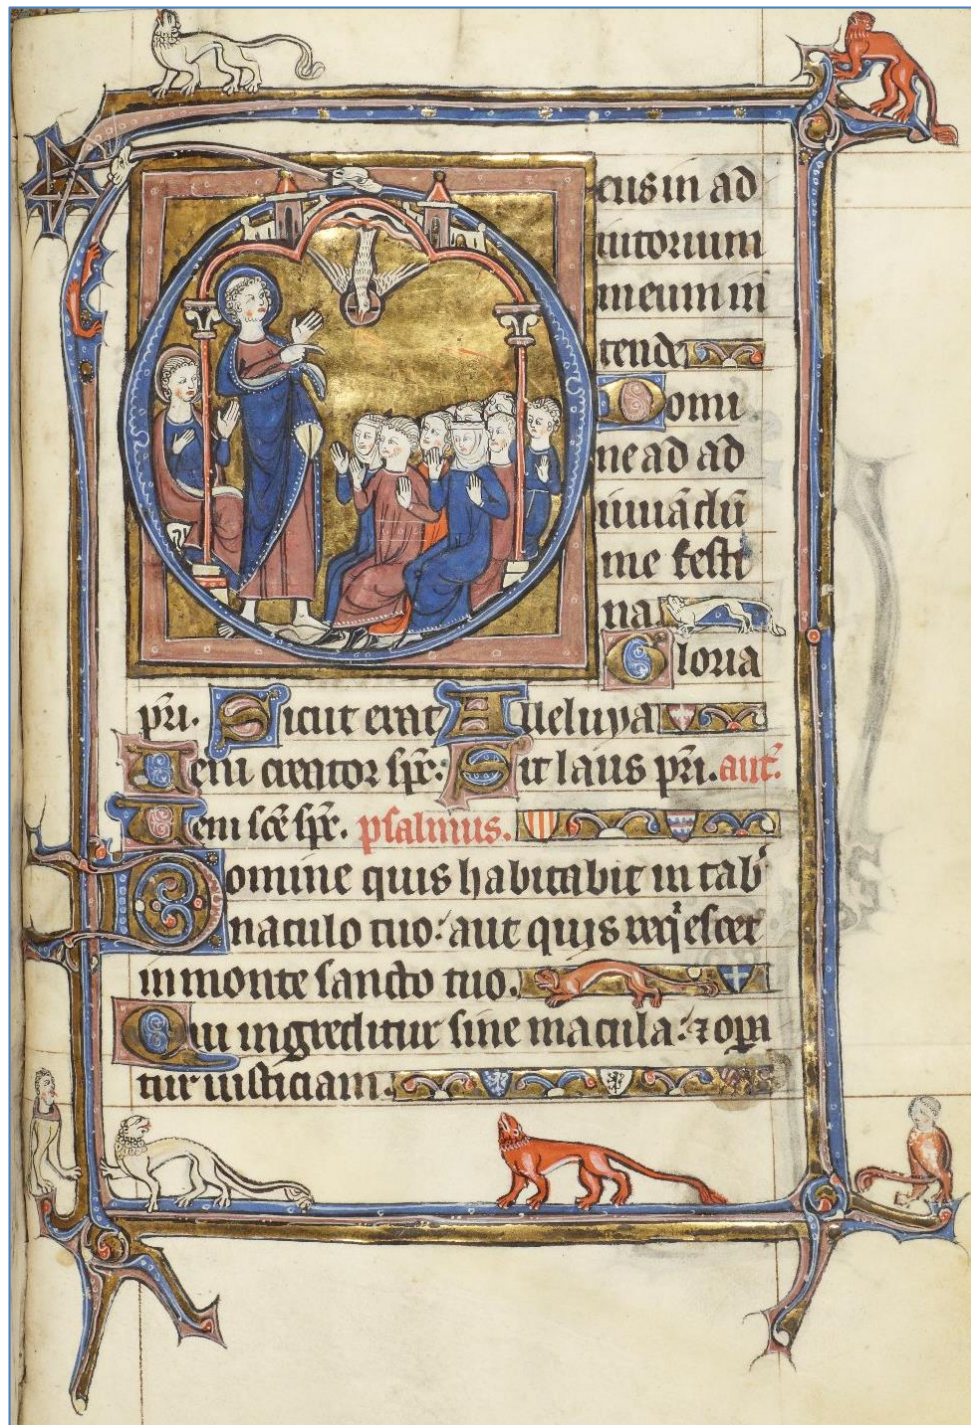 eus in ad
iutorium
meum in
tende
Domi
ne ad ad
iuuādū
me festi
na
Gloria
pr̄i. Sicut erat Alleluya
Ueni creator spr̄: Sit laus pr̄i. anť.
Ueni scē spr̄. psalmus.
Domine quis habitabit in tab̾
naculo tuo: aut quis req̾escet
in monte sancto tuo.
Qui ingreditur sine macula: ⁊ opa
tur iusticiam.